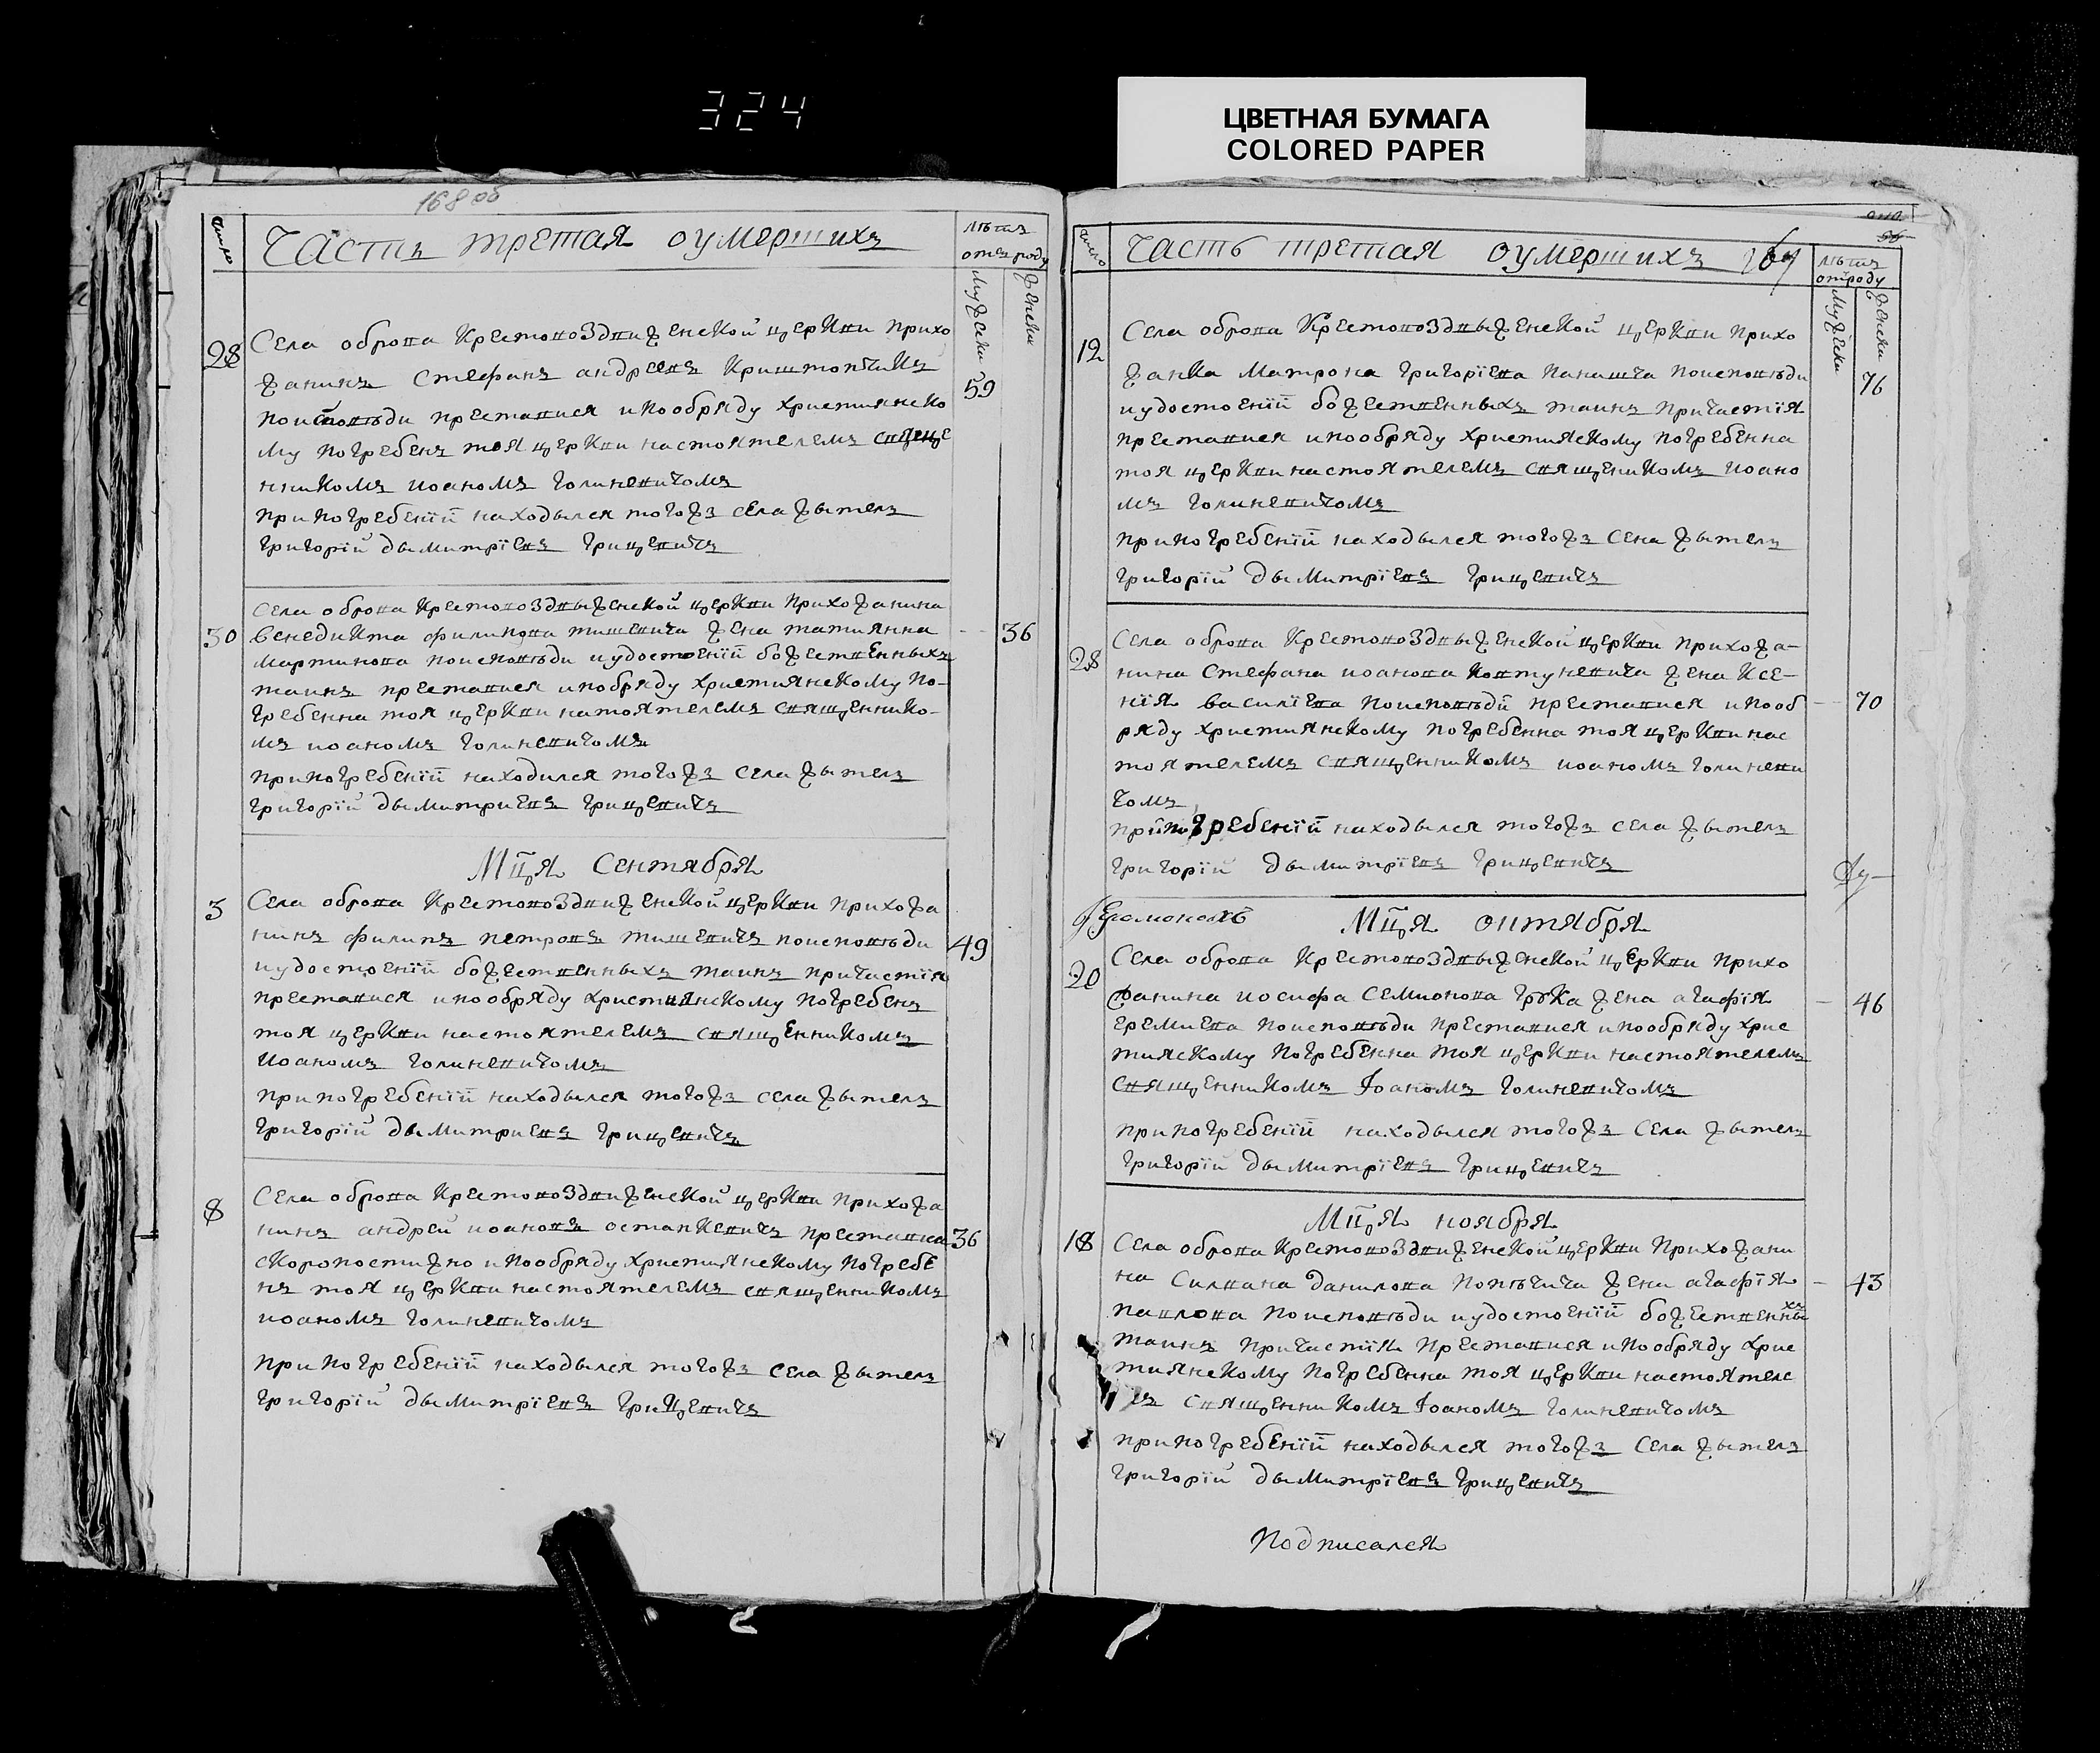 324
ЦВЕТНАЯ БУМАГА
COLORED PAPER
168 об
число
Часть третая оумершихъ
лѣта
отъ роду
мужески
женски
28
Села оброва Крестовоздвиженской церкви прихо
жанинъ Стефанъ андреевъ Криштопчикъ
59
поисповѣди преставися ипообряду християнско
му погребенъ тоя церкви настоятелемъ свяще
нникомъ иоаномъ Голиневичомъ
припогребенїй находылся тогожъ села жытель
Григорїй дымитрїевъ Грицевичъ
30
Села оброва Крестовоздвыженской церкви прихожанина
венедикта филипова тишевича жена татиянна
36
мартинова поисповѣди иудостоенїй божественныхъ
таинъ преставися ипобряду християнскому по-
гребенна тоя церкви натоятелемъ священнико-
мъ иоаномъ Голиневичомъ
припогребенїй находился тогожъ села жытель
Григорїй дымитриевъ Грицевичъ
Мцѧ Сентября
3
Села оброва Крестовоздвиженской церкви прихожа
нинъ филипъ петровъ тишевичъ поисповѣди
49
иудостоенїй божественныхъ таинъ причастїя
преставися ипообряду християнскому погребенъ
тоя церкви настоятелемъ священникомъ
иоаномъ Голиневичомъ
припогребенїй находылся тогожъ села жытель
Григорїй дымитриевъ Грицевичъ
8
Села оброва Крестовоздвиженской церкви прихожа
нинъ андрей иоановъ остапкевичъ преставися
36
скоропостижно ипообряду християнскому погребе
нъ тоя церкви настоятелемъ священникомъ
иоаномъ Голиневичомъ
припогребенїй находылся тогожъ села жытель
Григорїй дымитрїевъ Грицевичъ
число
Часть третая оумершихъ
169
лѣта
отроду
мужески
женски
12
Села оброва Крестовоздвыженской церкви прихо
жанка Матрона Григорїева панашча поисповѣди
76
иудостоенїй божественныхъ таинъ причастїя
преставися ипообряду християскому погребенна
тоя церкви настоятелемъ священикомъ иоано
мъ Голиневичомъ
припогребенїй находылся тогожъ села жытель
Григорїй дымитрїевъ Грицевичъ
28
Села оброва Крестовоздвыженской церкви прихожа-
нина Стефана иоанова Ковтуневича жена Ксе-
нїя василїева поисповѣдй преставися ипооб
70
ряду християнскому погребенна тоя церкви нас
тоятелемъ священникомъ иоаномъ Голиневи
чомъ
припогребенїй находылся тогожъ села жытель
Григорїй дымитрїевъ Грицевичъ
Iеромонахъ
Мцѧ октября
20
Села оброва Крестовоздвыженской церкви прихо
жанина иосифа Семионова жена агафїя
46
еремиева поисповѣди преставися ипообряду хрис
тияскому погребенна тоя церкви настоятелемъ
священникомъ Iоаномъ Голиневичомъ
припогребенїй находылся тогожъ села жытель
Григорїй дымитрїевъ Грицевичъ
Мцѧ ноября
18
Села оброва Крестовоздвиженской церкви прихожани
на Силвана данилова жена агафїя
43
павлова поисповѣди иудостоенїй божественныхъ
таинъ причастїя преставися ипообряду хрис
тиянскому погребенна тоя церкви настоятеле
мъ священникомъ Iоаномъ Голиневичомъ
припогребенїй находылся тогожъ села жытель
Григорїй дымитрїевъ Грицевичъ
Подписался